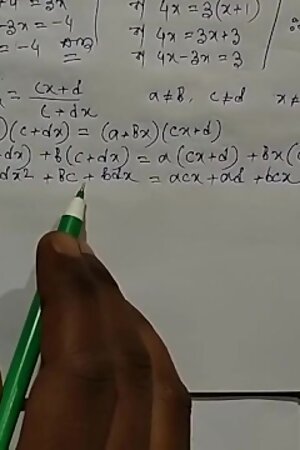 +4 = 3x
-3x = -4
= -4
বা 4x = 3(x+1)
বা 4x = 3x+3
বা 4x-3x = 3
= cx+d / c+dx a≠b, c≠d x≠
)(c+dx) = (a+bx)(cx+d)
dx) + b(c+dx) = a(cx+d) + bx(
dx² + bc + bdx = acx + ad + bcx